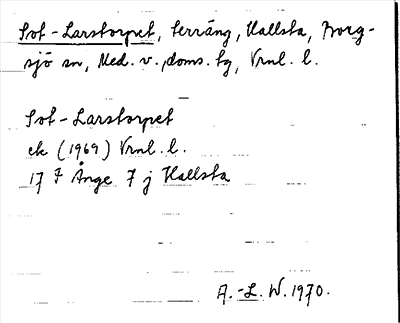 Sot-Larstorpet, terräng, Hallsta, Borg-
sjö sn, Med. v. doms. tg, Vrnl. l.
Sot-Larstorpet
ek (1969) Vrnl. l.
17 F Ånge 7 j Hallsta
A.-L. W. 1970.